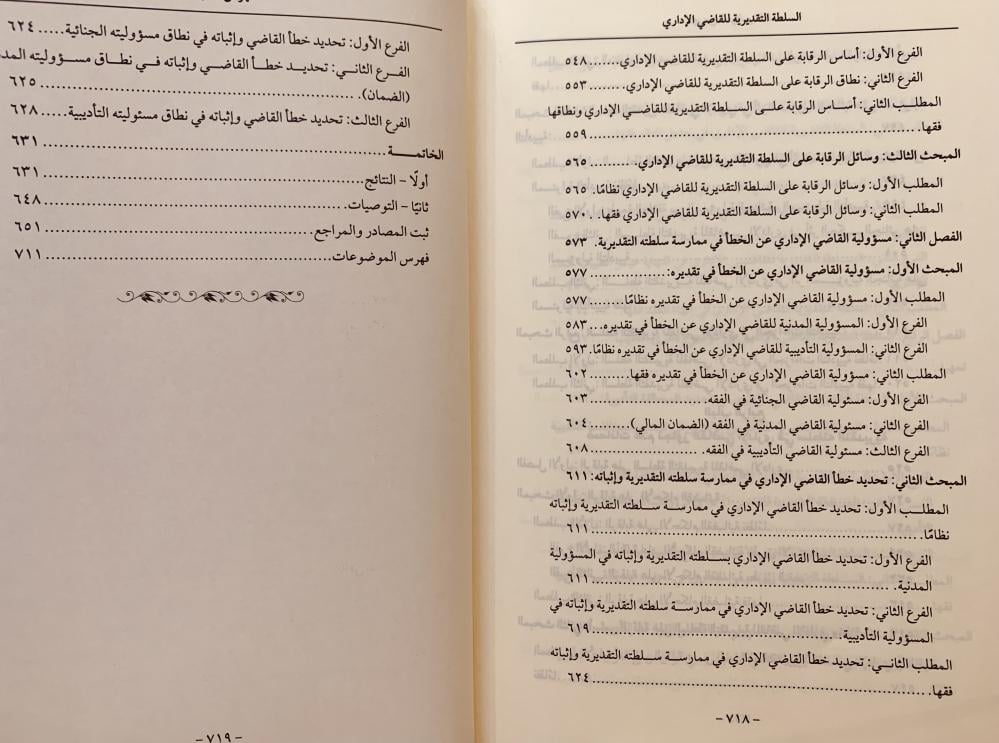 السلطة التقديرية للقاضي الإداري
الفرع الأول: أساس الرقابة على السلطة التقديرية للقاضي الإداري....... ٥٤٨
الفرع الثاني: نطاق الرقابة على السلطة التقديرية للقاضي الإداري........ ٥٥٣
المطلب الثاني: أساس الرقابة على السلطة التقديرية للقاضي الإداري ونطاقها
فقها........................................................ ٥٥٩
المبحث الثالث: وسائل الرقابة على السلطة التقديرية للقاضي الإداري.......... ٥٦٥
المطلب الأول: وسائل الرقابة على السلطة التقديرية للقاضي الإداري نظامًا. ٥٦٥
المطلب الثاني: وسائل الرقابة على السلطة التقديرية للقاضي الإداري فقها. . ٥٧٠
الفصل الثاني: مسؤولية القاضي الإداري عن الخطأ في ممارسة سلطته التقديرية. ٥٧٣
المبحث الأول: مسؤولية القاضي الإداري عن الخطأ في تقديره:............. ٥٧٧
المطلب الأول: مسؤولية القاضي الإداري عن الخطأ في تقديره نظامًا........ ٥٧٧
الفرع الأول: المسؤولية المدنية للقاضي الإداري عن الخطأ في تقديره... ٥٨٣
الفرع الثاني: المسؤولية التأديبية للقاضي الإداري عن الخطأ في تقديره نظامًا. ٥٩٣
المطلب الثاني: مسؤولية القاضي الإداري عن الخطأ في تقديره فقها......... ٦٠٢
الفرع الأول: مسئولية القاضي الجنائية في الفقه. ...................... ٦٠٣
الفرع الثاني: مسئولية القاضي المدنية في الفقه (الضمان المالي)........... ٦٠٤
الفرع الثالث: مسئولية القاضي التأديبية في الفقه. ..................... ٦٠٨
المبحث الثاني: تحديد خطأ القاضي الإداري في ممارسة سلطته التقديرية وإثباته: ٦١١
المطلب الأول: تحديد خطأ القاضي الإداري في ممارسة سلطته التقديرية وإثباته
نظامًا....................................................... ٦١١
الفرع الأول: تحديد خطأ القاضي الإداري بسلطته التقديرية وإثباته في المسؤولية
المدنية. .................................................. ٦١١
الفرع الثاني: تحديد خطأ القاضي الإداري في ممارسة سلطته التقديرية وإثباته في
المسؤولية التأديبية. ......................................... ٦١٩
المطلب الثاني: تحديد خطأ القاضي الإداري في ممارسة سلطته التقديرية وإثباته
فقها........................................................ ٦٢٤
-٧١٨-
الفرع الأول: تحديد خطأ القاضي وإثباته في نطاق مسؤوليته الجنائية..... ٦٢٤
الفرع الثاني: تحديد خطأ القاضي وإثباته في نطاق مسؤوليته
(الضمان). ................................................ ٦٢٥
الفرع الثالث: تحديد خطأ القاضي وإثباته في نطاق مسئوليته التأديبية..... ٦٢٨
الخاتمة........................................................ ٦٣١
أولًا – النتائج.................................................. ٦٣١
ثانيًا – التوصيات. .............................................. ٦٤٨
ثبت المصادر والمراجع. .......................................... ٦٥١
فهرس الموضوعات............................................. ٧١١
-٧١٩-